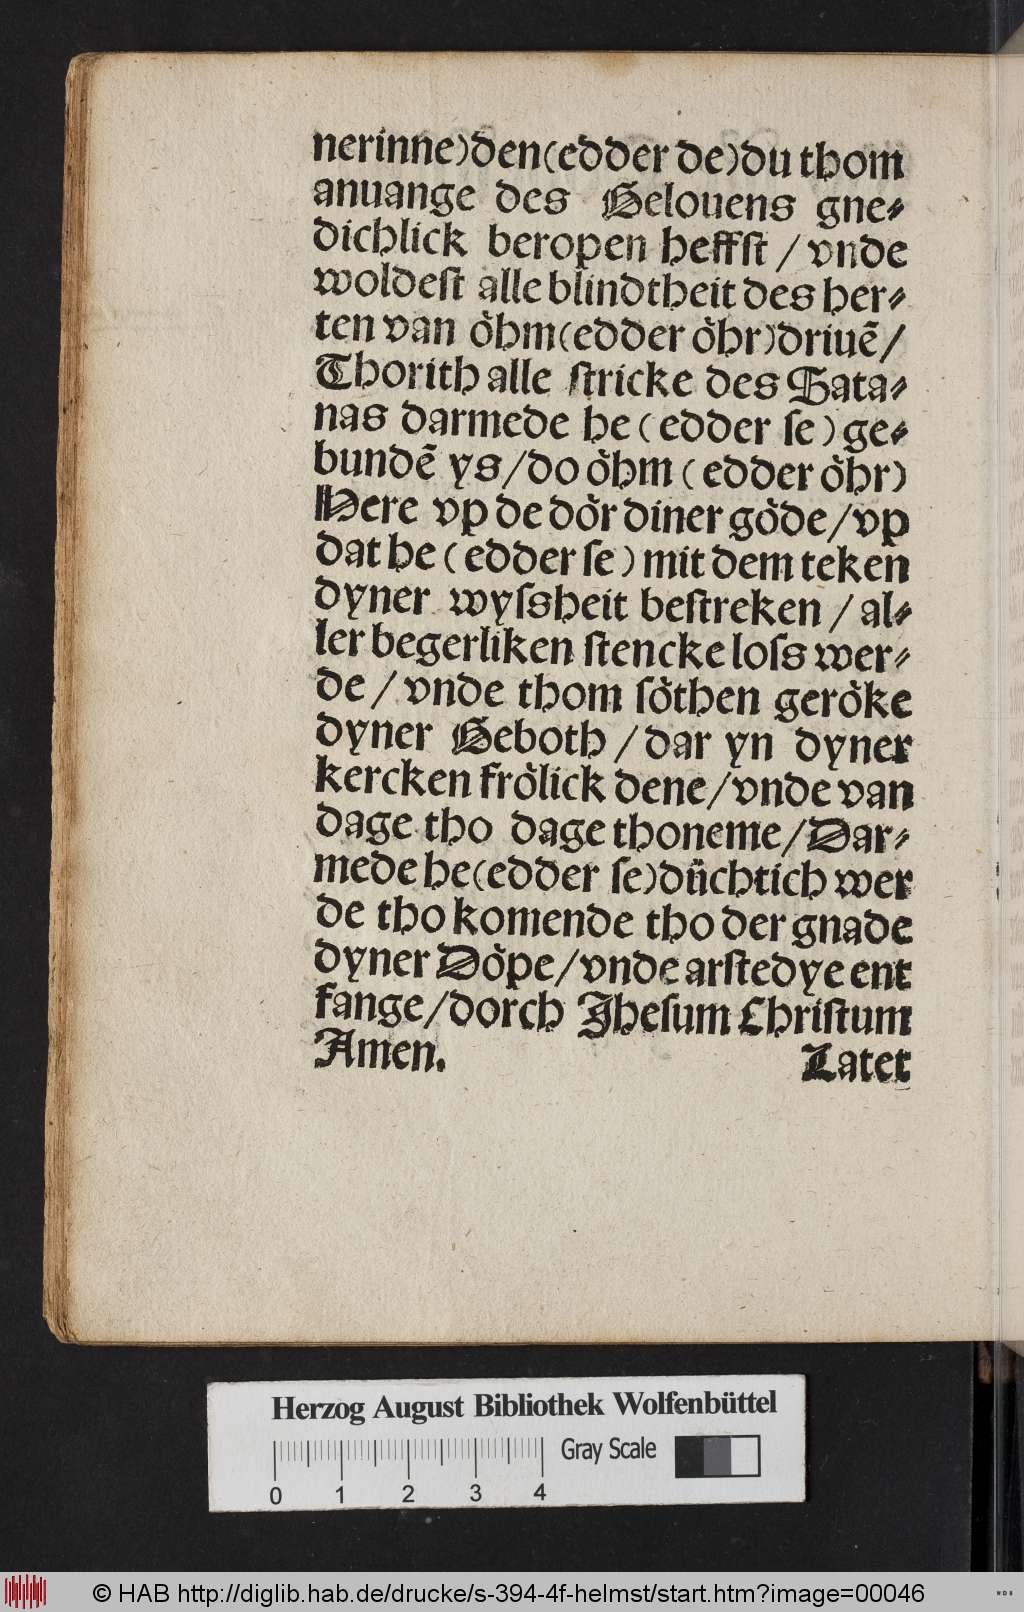 nerinne)den(edder de)du thom
anuange des Gelouens gne⸗
dichlick beropen heffst / vnde
woldest alle blindtheit des her⸗
ten van oͤhm(edder oͤhr)driuē/
Thorith alle stricke des Sata⸗
nas darmede he ( edder se ) ge⸗
bundē ys/do oͤhm ( edder oͤhr)
Here vp de doͤr diner goͤde/vp
dat he ( edder se ) mit dem teken
dyner wyſsheit bestreken / al⸗
ler begerliken stencke loſs wer⸗
de / vnde thom ſoͤthen geroͤke
dyner Geboth / dar yn dyner
kercken froͤlick dene/vnde van
dage tho dage thoneme/Dar⸗
mede he(edder ſe)duͤchtich wer
de tho komende tho der gnade
dyner Doͤpe/vnde arstedye ent
fange/dorch Jheſum Christum
Amen. Latet
Herzog August Bibliothek Wolfenbüttel
Gray Scale
0 1 2 3 4
© HAB http://diglib.hab.de/drucke/s-394-4f-helmst/start.htm?image=00046